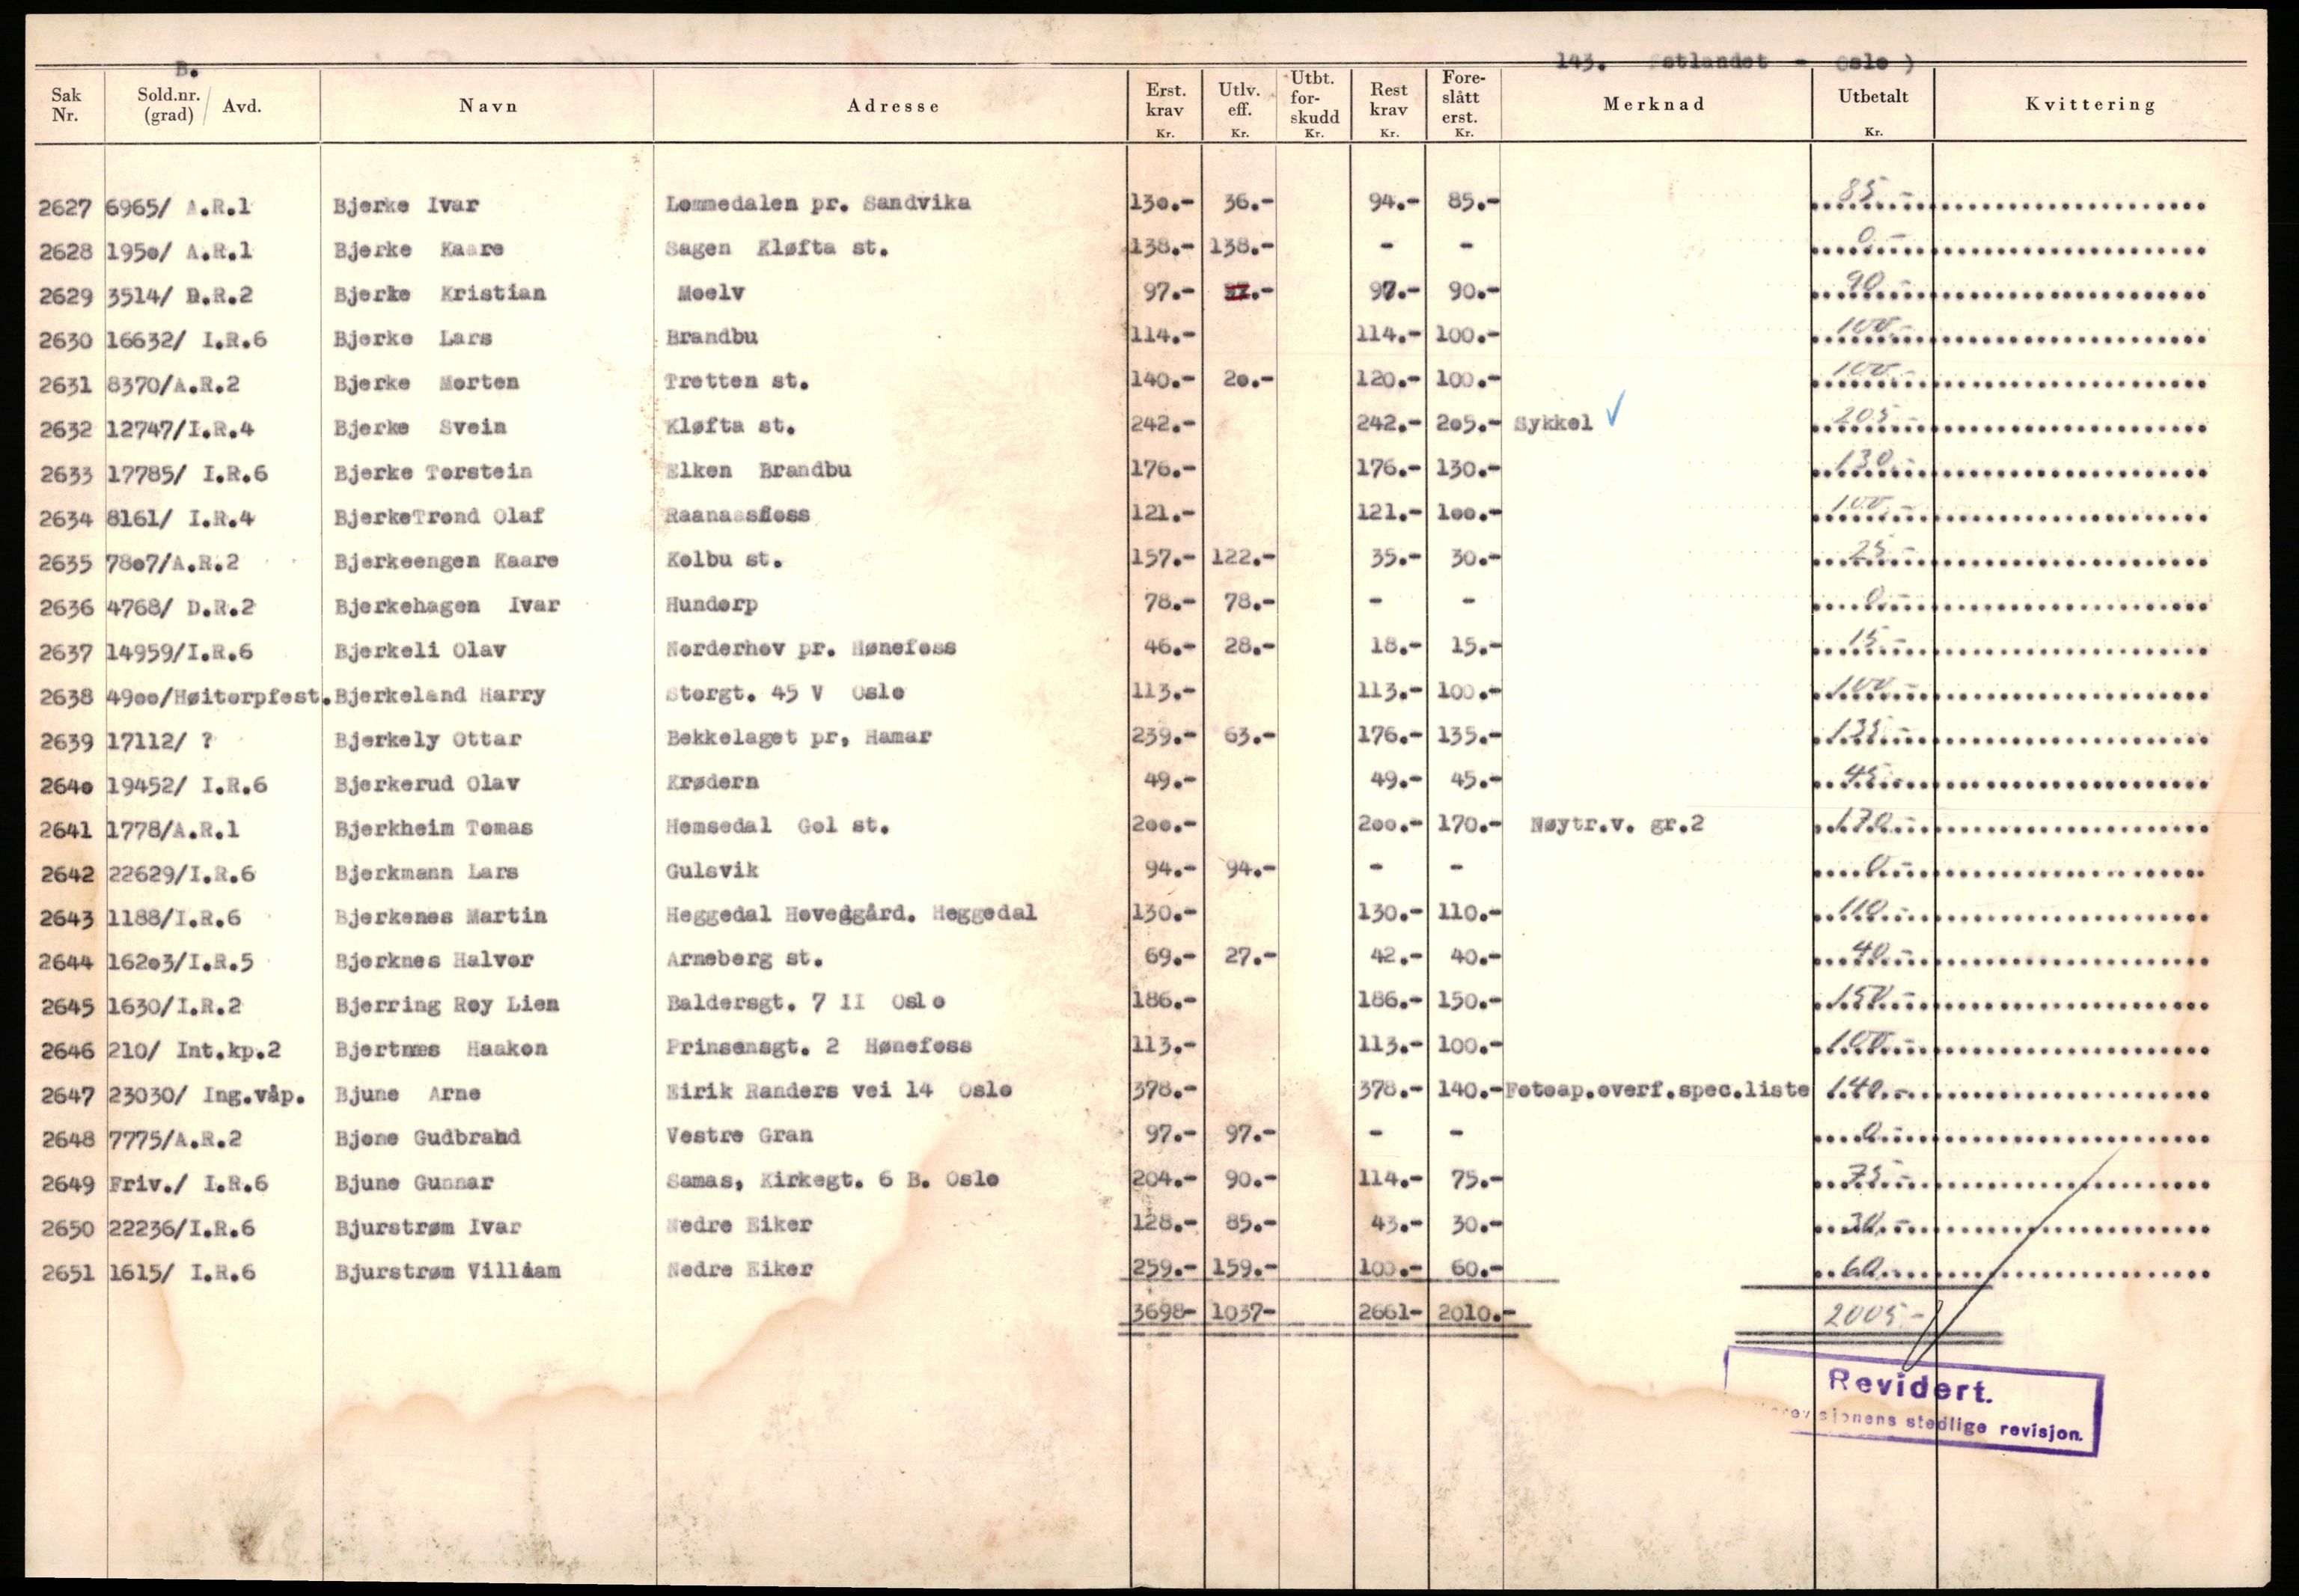 B.
143. stlandet - Oslo )
Sak Nr. Sold.nr. (grad) / Avd. Navn Adresse Erst. krav Kr. Utlv. eff. Kr. Utbt. for- skudd Kr. Rest krav Kr. Fore- slått erst. Kr. Merknad Utbetalt Kr. Kvittering
2627 6965/ A.R.1 Bjerke Ivar Lommedalen pr. Sandvika 130.- 36.- 94.- 85.- 85.-
2628 1950/ A.R.1 Bjerke Kaare Sagen Kløfta st. 138.- 138.- - - 0.-
2629 3514/ D.R.2 Bjerke Kristian Moelv 97.- 97.- 90.- 90.-
2630 16632/ I.R.6 Bjerke Lars Brandbu 114.- 114.- 100.- 100.-
2631 8370/A.R.2 Bjerke Morten Tretten st. 140.- 20.- 120.- 100.- 100.-
2632 12747/I.R.4 Bjerke Svein Kløfta st. 242.- 242.- 205.- Sykkel ✓ 205.-
2633 17785/ I.R.6 Bjerke Torstein Elken Brandbu 176.- 176.- 130.- 130.-
2634 8161/ I.R.4 BjerkeTrond Olaf Raanaasfoss 121.- 121.- 100.- 100.-
2635 7807/A.R.2 Bjerkeengen Kaare Kolbu st. 157.- 122.- 35.- 30.- 25.-
2636 4768/ D.R.2 Bjerkehagen Ivar Hundorp 78.- 78.- - - 0.-
2637 14959/I.R.6 Bjerkeli Olav Norderhov pr. Hønefoss 46.- 28.- 18.- 15.- 15.-
2638 4900/Høitorpfest. Bjerkeland Harry Storgt. 45 V Oslo 113.- 113.- 100.- 100.-
2639 17112/ ? Bjerkely Ottar Bekkelaget pr, Hamar 239.- 63.- 176.- 135.- 135.-
2640 19452/ I.R.6 Bjerkerud Olav Krødern 49.- 49.- 45.- 45.-
2641 1778/A.R.1 Bjerkheim Tomas Hemsedal Gol st. 200.- 200.- 170.- Nøytr.v. gr.2 170.-
2642 22629/I.R.6 Bjerkmann Lars Gulsvik 94.- 94.- - - 0.-
2643 1188/I.R.6 Bjerkenes Martin Heggedal Hovedgård. Heggedal 130.- 130.- 110.- 110.-
2644 16203/I.R.5 Bjerknes Halvor Arneberg st. 69.- 27.- 42.- 40.- 40.-
2645 1630/I.R.2 Bjerring Roy Lien Baldersgt. 7 II Oslo 186.- 186.- 150.- 150.-
2646 210/ Int.kp.2 Bjertnæs Haakon Prinsensgt. 2 Hønefoss 113.- 113.- 100.- 100.-
2647 23030/ Ing.våp. Bjune Arne Eirik Randers vei 14 Oslo 378.- 378.- 140.- Fotoap.overf.spec.liste 140.-
2648 7775/A.R.2 Bjone Gudbrand Vestre Gran 97.- 97.- - - 0.-
2649 Friv./ I.R.6 Bjune Gunnar Samas, Kirkegt. 6 B. Oslo 204.- 90.- 114.- 75.- 75.-
2650 22236/I.R.6 Bjurstrøm Ivar Nedre Eiker 128.- 85.- 43.- 30.- 30.-
2651 1615/ I.R.6 Bjurstrøm Villiam Nedre Eiker 259.- 159.- 100.- 60.- 60.-
3698- 1037- 2661- 2010.- 2005.-
Revidert.
sjonens stedlige revisjon.